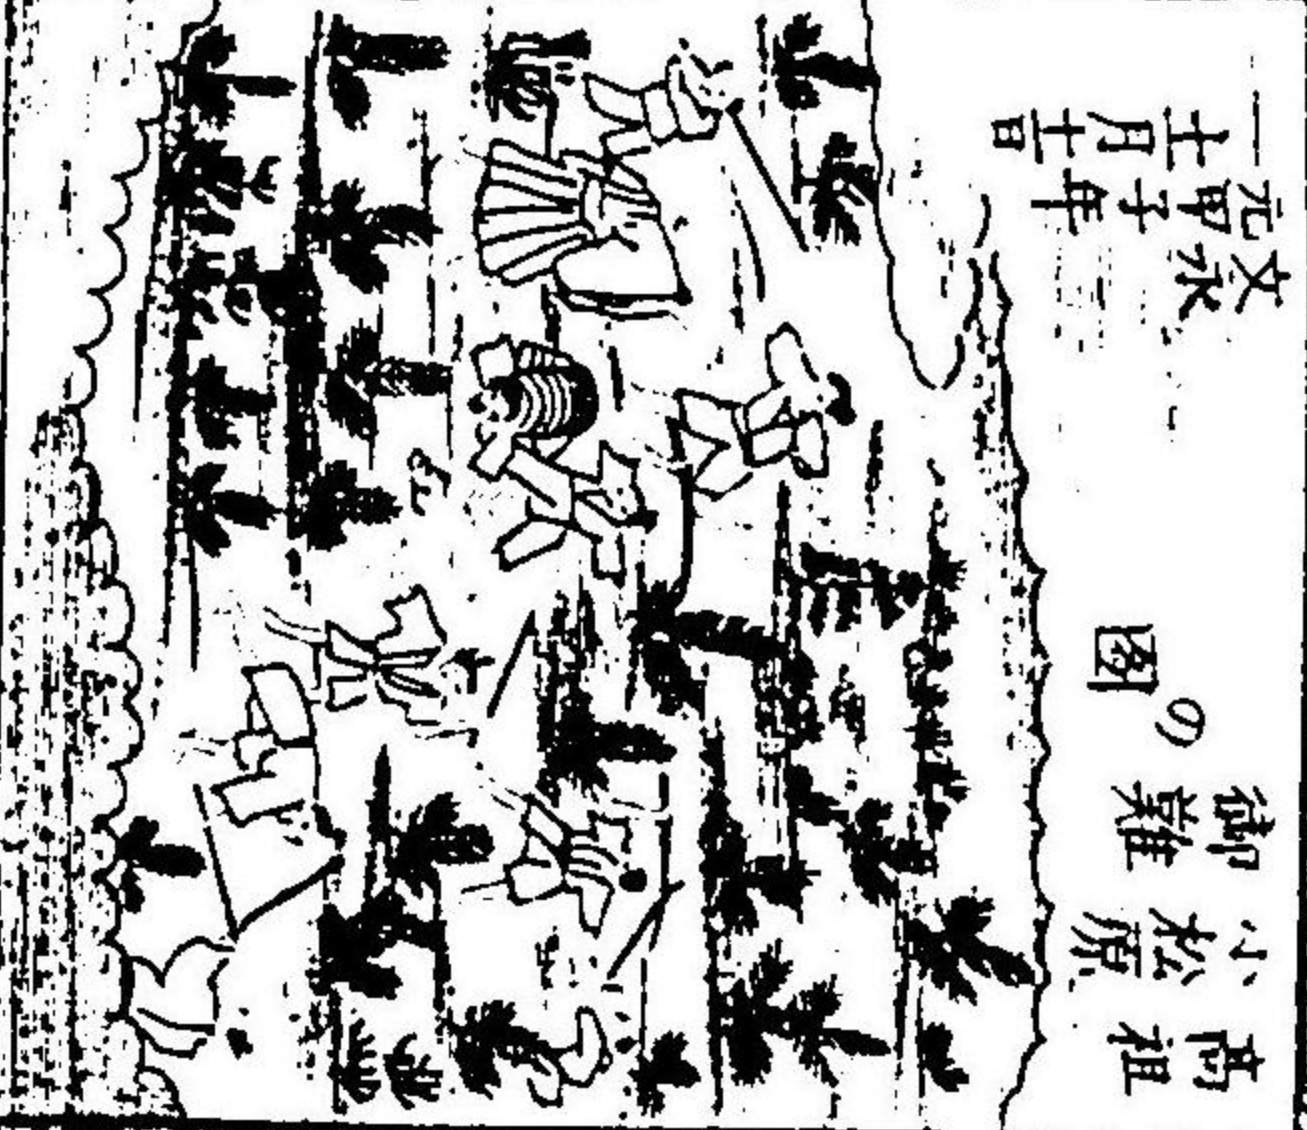 高祖
小松原
御難
の
図
文永
元甲子年
十一月十一日